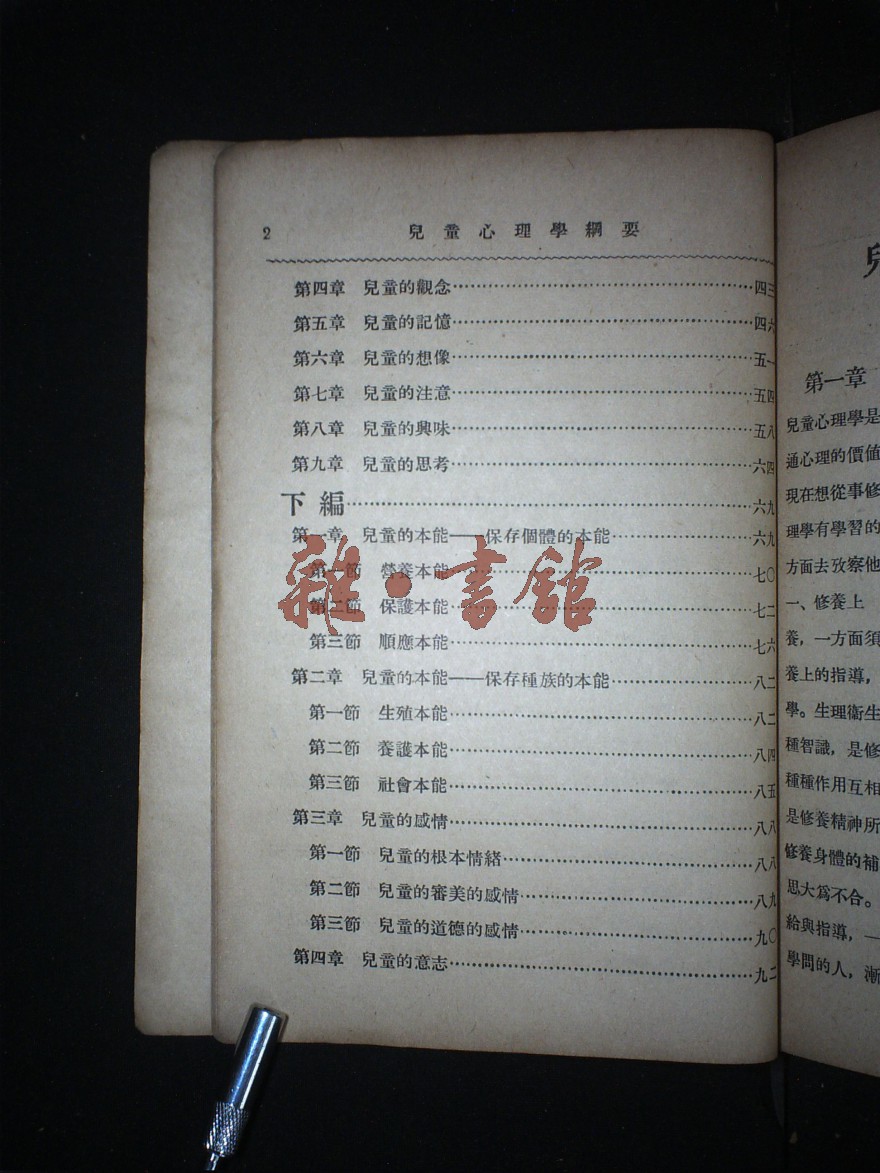 2 兒童心理學綱要
第四章 兒童的觀念……四三
第五章 兒童的記憶……四六
第六章 兒童的想像……五一
第七章 兒童的注意……五四
第八章 兒童的興味……五八
第九章 兒童的思考……六四
下編……六九
第一章 兒童的本能——保存個體的本能……六九
第一節 營養本能……七〇
第二節 保護本能……七二
第三節 順應本能……七六
第二章 兒童的本能——保存種族的本能……八二
第一節 生殖本能……八二
第二節 養護本能……八四
第三節 社會本能……八五
第三章 兒童的感情……八八
第一節 兒童的根本情緒……八八
第二節 兒童的審美的感情……八九
第三節 兒童的道德的感情……九〇
第四章 兒童的意志……九二
雜·書館
第一章
兒童心理學是
通心理的價値
現在想從事修
理學有學習的
方面去攷察他
一、修養上
養，一方面須
養上的指導，
學。生理衞生
種智識，是修
種種作用互相
是修養精神所
修養身體的補
思大爲不合。
給與指導，一
學問的人，漸